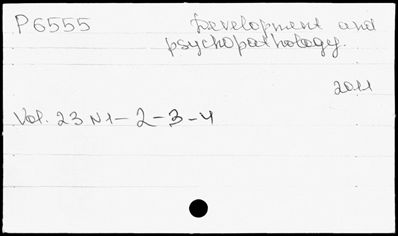 P6555 Development and
psychopathology.
2011
Vol. 23 N1-2-3-4